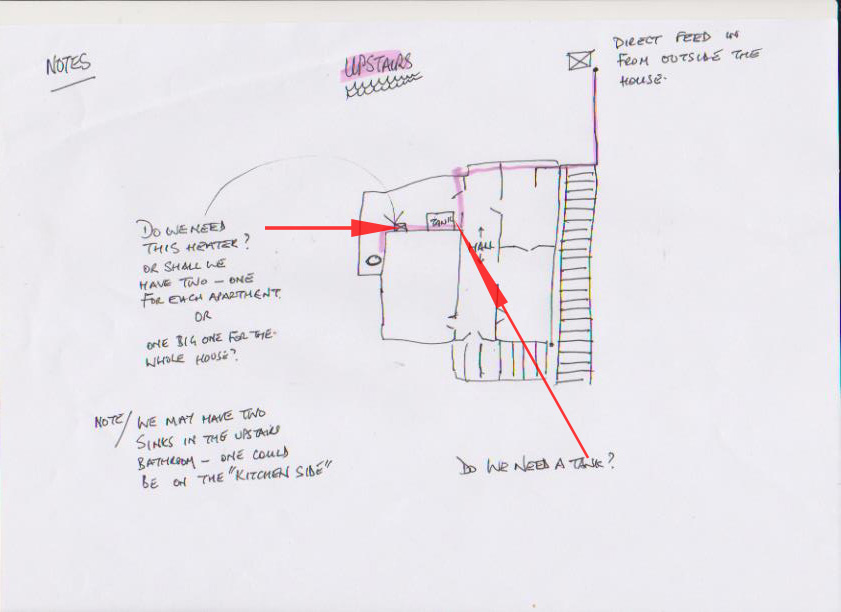 NOTES
UPSTAIRS
DIRECT FEED IN
FROM OUTSIDE THE
HOUSE.
TANK
HALL
DO WE NEED
THIS HEATER?
OR SHALL WE
HAVE TWO – ONE
FOR EACH APARTMENT.
OR
ONE BIG ONE FOR THE
WHOLE HOUSE?
NOTE/ WE MAY HAVE TWO
SINKS IN THE UPSTAIRS
BATHROOM – ONE COULD
BE ON THE "KITCHEN SIDE"
DO WE NEED A TANK?